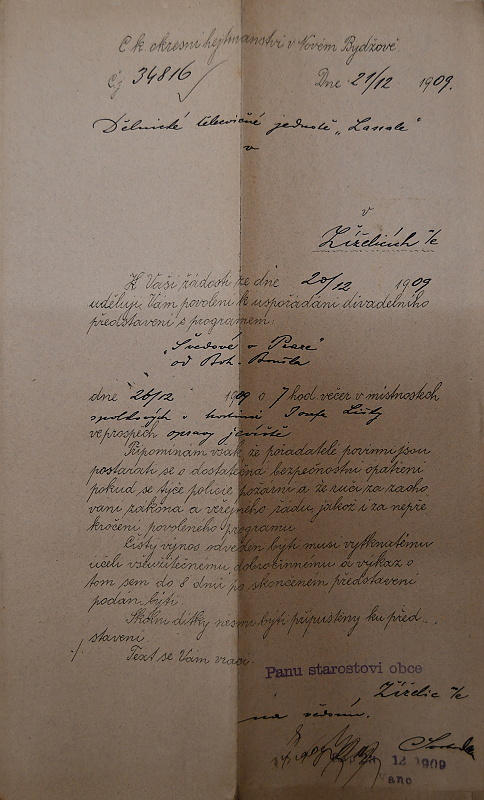 C. k. okresní hejtmanství v Novém Bydžově
Čj 34816
Dne 21/12 1909.
Dělnické tělocvičné jednotě „Lassale"
v
v
Žíželicích n/c
K Vaší žádosti ze dne 20/12 1909
uděluji Vám povolení k uspořádání divadelního
představení s programem:
„Švédové v Praze"
od Boh.
dne 26/12 1909 o 7 hod večer v místnostech
spolkových v hostinci Josefa
ve prospěch opravy jeviště
Připomínám však, že pořadatelé povinni jsou
postarati se o dostatečná bezpečnostní opatření
pokud se týče policie požární a že ručí za zacho
vání zákona a veřejného řádu, jakož i za nepře
kročení povoleného programu
Čistý výnos odveden býti musí vytknutému
účeli všeužitečnému, dobročinnému a výkaz o
tom sem do 8 dnů po skončeném představení
podán býti
Školní dítky nesmí býti připuštěny ku před
stavení.
Text se Vám vrací.
Panu starostovi obce
Žíželic n/c
na vědomí.
12 1909